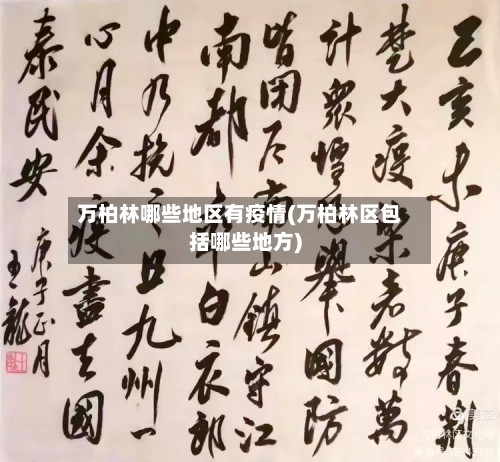 己亥末庚子春荆
楚大疫染者数萬
计眾惶恐舉國防
皆閉户南山鎮守江
南都率白衣郎
中乃抗之且九州一
心月余疫盡去國
泰民安
庚子正月
王龍
万柏林哪些地区有疫情(万柏林区包
括哪些地方)